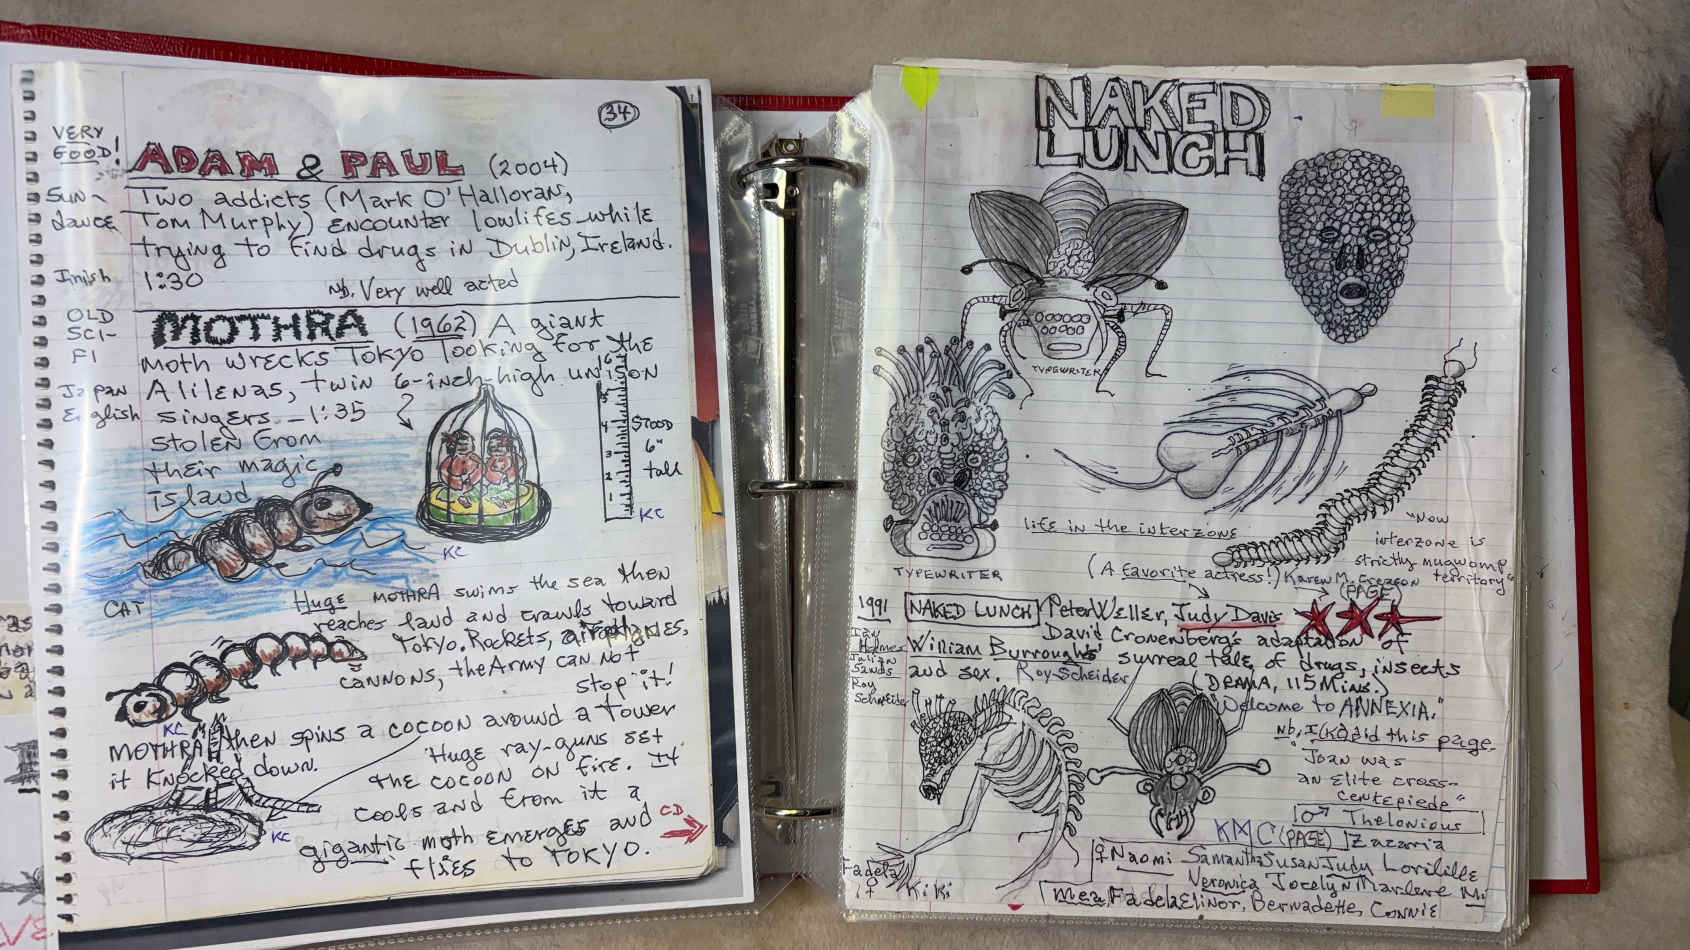 34
VERY
GOOD!
ADAM & PAUL (2004)
Sun-
dance
Two addicts (Mark O'Halloran,
Tom Murphy) encounter lowlifes while
trying to find drugs in Dublin, Ireland.
Irish
1:30
Nb. Very well acted
OLD
SCI-
FI
MOTHRA (1962) A giant
moth wrecks Tokyo looking for the
Japan
English
Alilenas, twin 6-inch-high unison
singers - 1:35
stolen from
their magic
island
6
5
4
3
2
1
Stood
6"
tall
KC
KC
CAT
Huge MOTHRA swims the sea then
reaches land and crawls toward
Tokyo. Rockets, airplanes,
cannons, the Army can not
stop it!
KC
MOTHRA then spins a cocoon around a tower
it knocked down.
Huge ray-guns set
the cocoon on fire. It
cools and from it a
gigantic moth emerges and
flies to TOKYO.
KC
CD
NAKED
LUNCH
TYPEWRITER
TYPEWRITER
life in the interzone
"Now
interzone is
strictly mugwump
territory"
(A favorite actress!)
Karen M.
(PAGE)
1991 NAKED LUNCH Peter Weller, Judy Davis
David Cronenberg's adaptation of
William Burroughs' surreal tale of drugs, insects
and sex. Roy Scheider (DRAMA, 115 Mins.)
Ian
Holmes
Julian
Sands
Roy
Schneider
"Welcome to ANNEXIA."
Nb. I (KC) did this page.
"Joan was
an elite cross-
centepiede"
♂ Thelonious
KMC (PAGE) Zazaria
♀ Naomi Samantha Susan Judy
Veronica Jocelyn Marlene
Mea, Fadela Elinor, Bernadette, Connie
Fadela
♀
KiKi